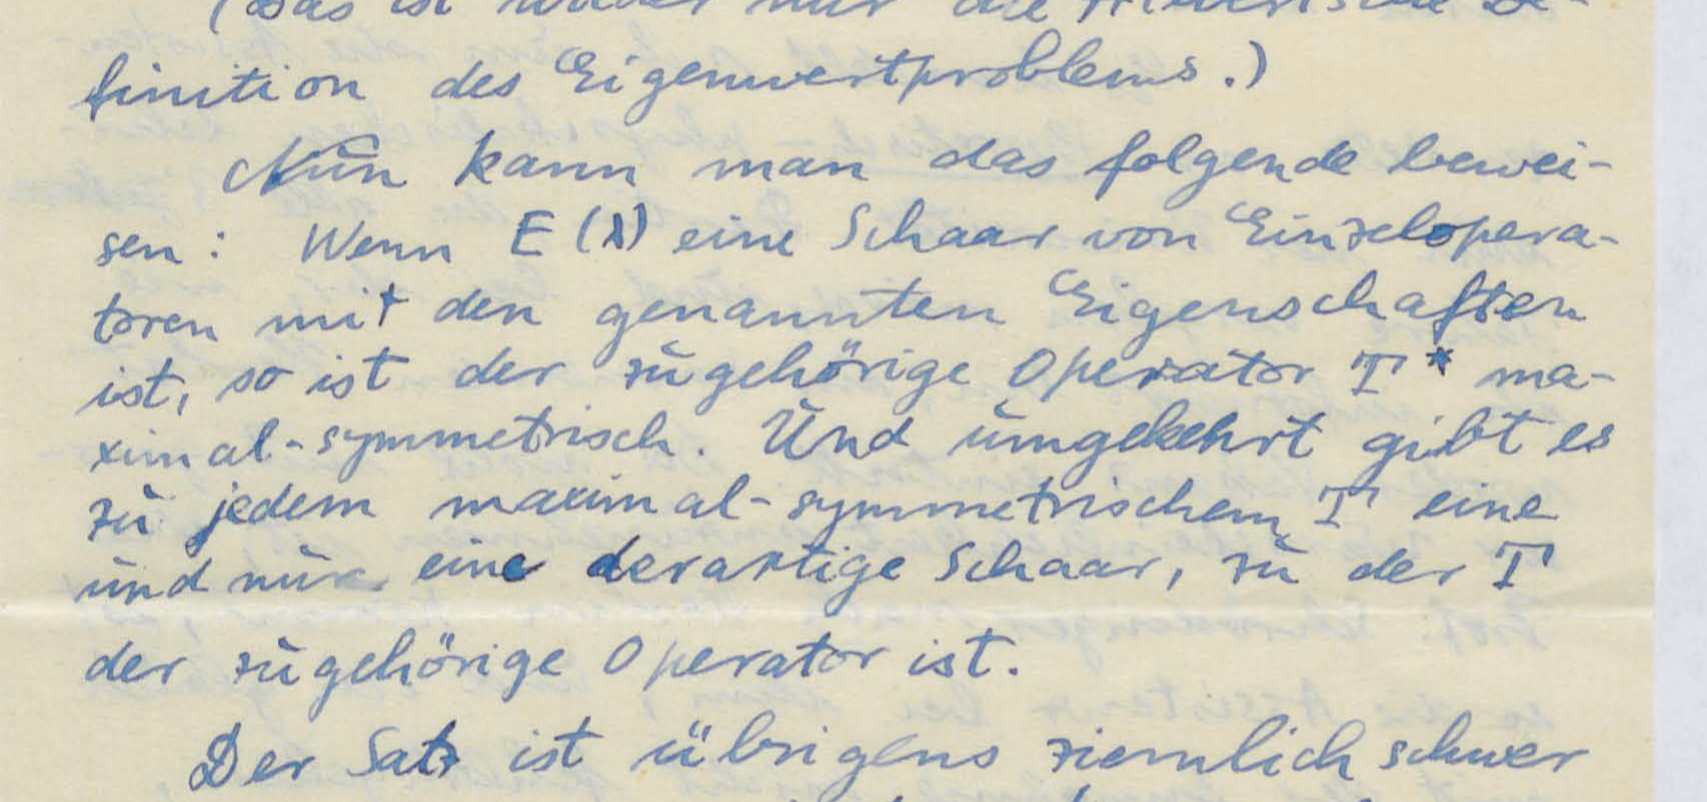 (Das ist wieder nur die Hilbertsche De-
finition des Eigenwertproblems.)
Nun kann man das folgende bewei-
sen: Wenn E(λ) eine Schaar von Einzelopera-
toren mit den genannten Eigenschaften
ist, so ist der zugehörige Operator T* ma-
ximal-symmetrisch. Und umgekehrt gibt es
zu jedem maximal-symmetrischem T eine
und nur eine derartige Schaar, zu der T
der zugehörige Operator ist.
Der Satz ist übrigens ziemlich schwer